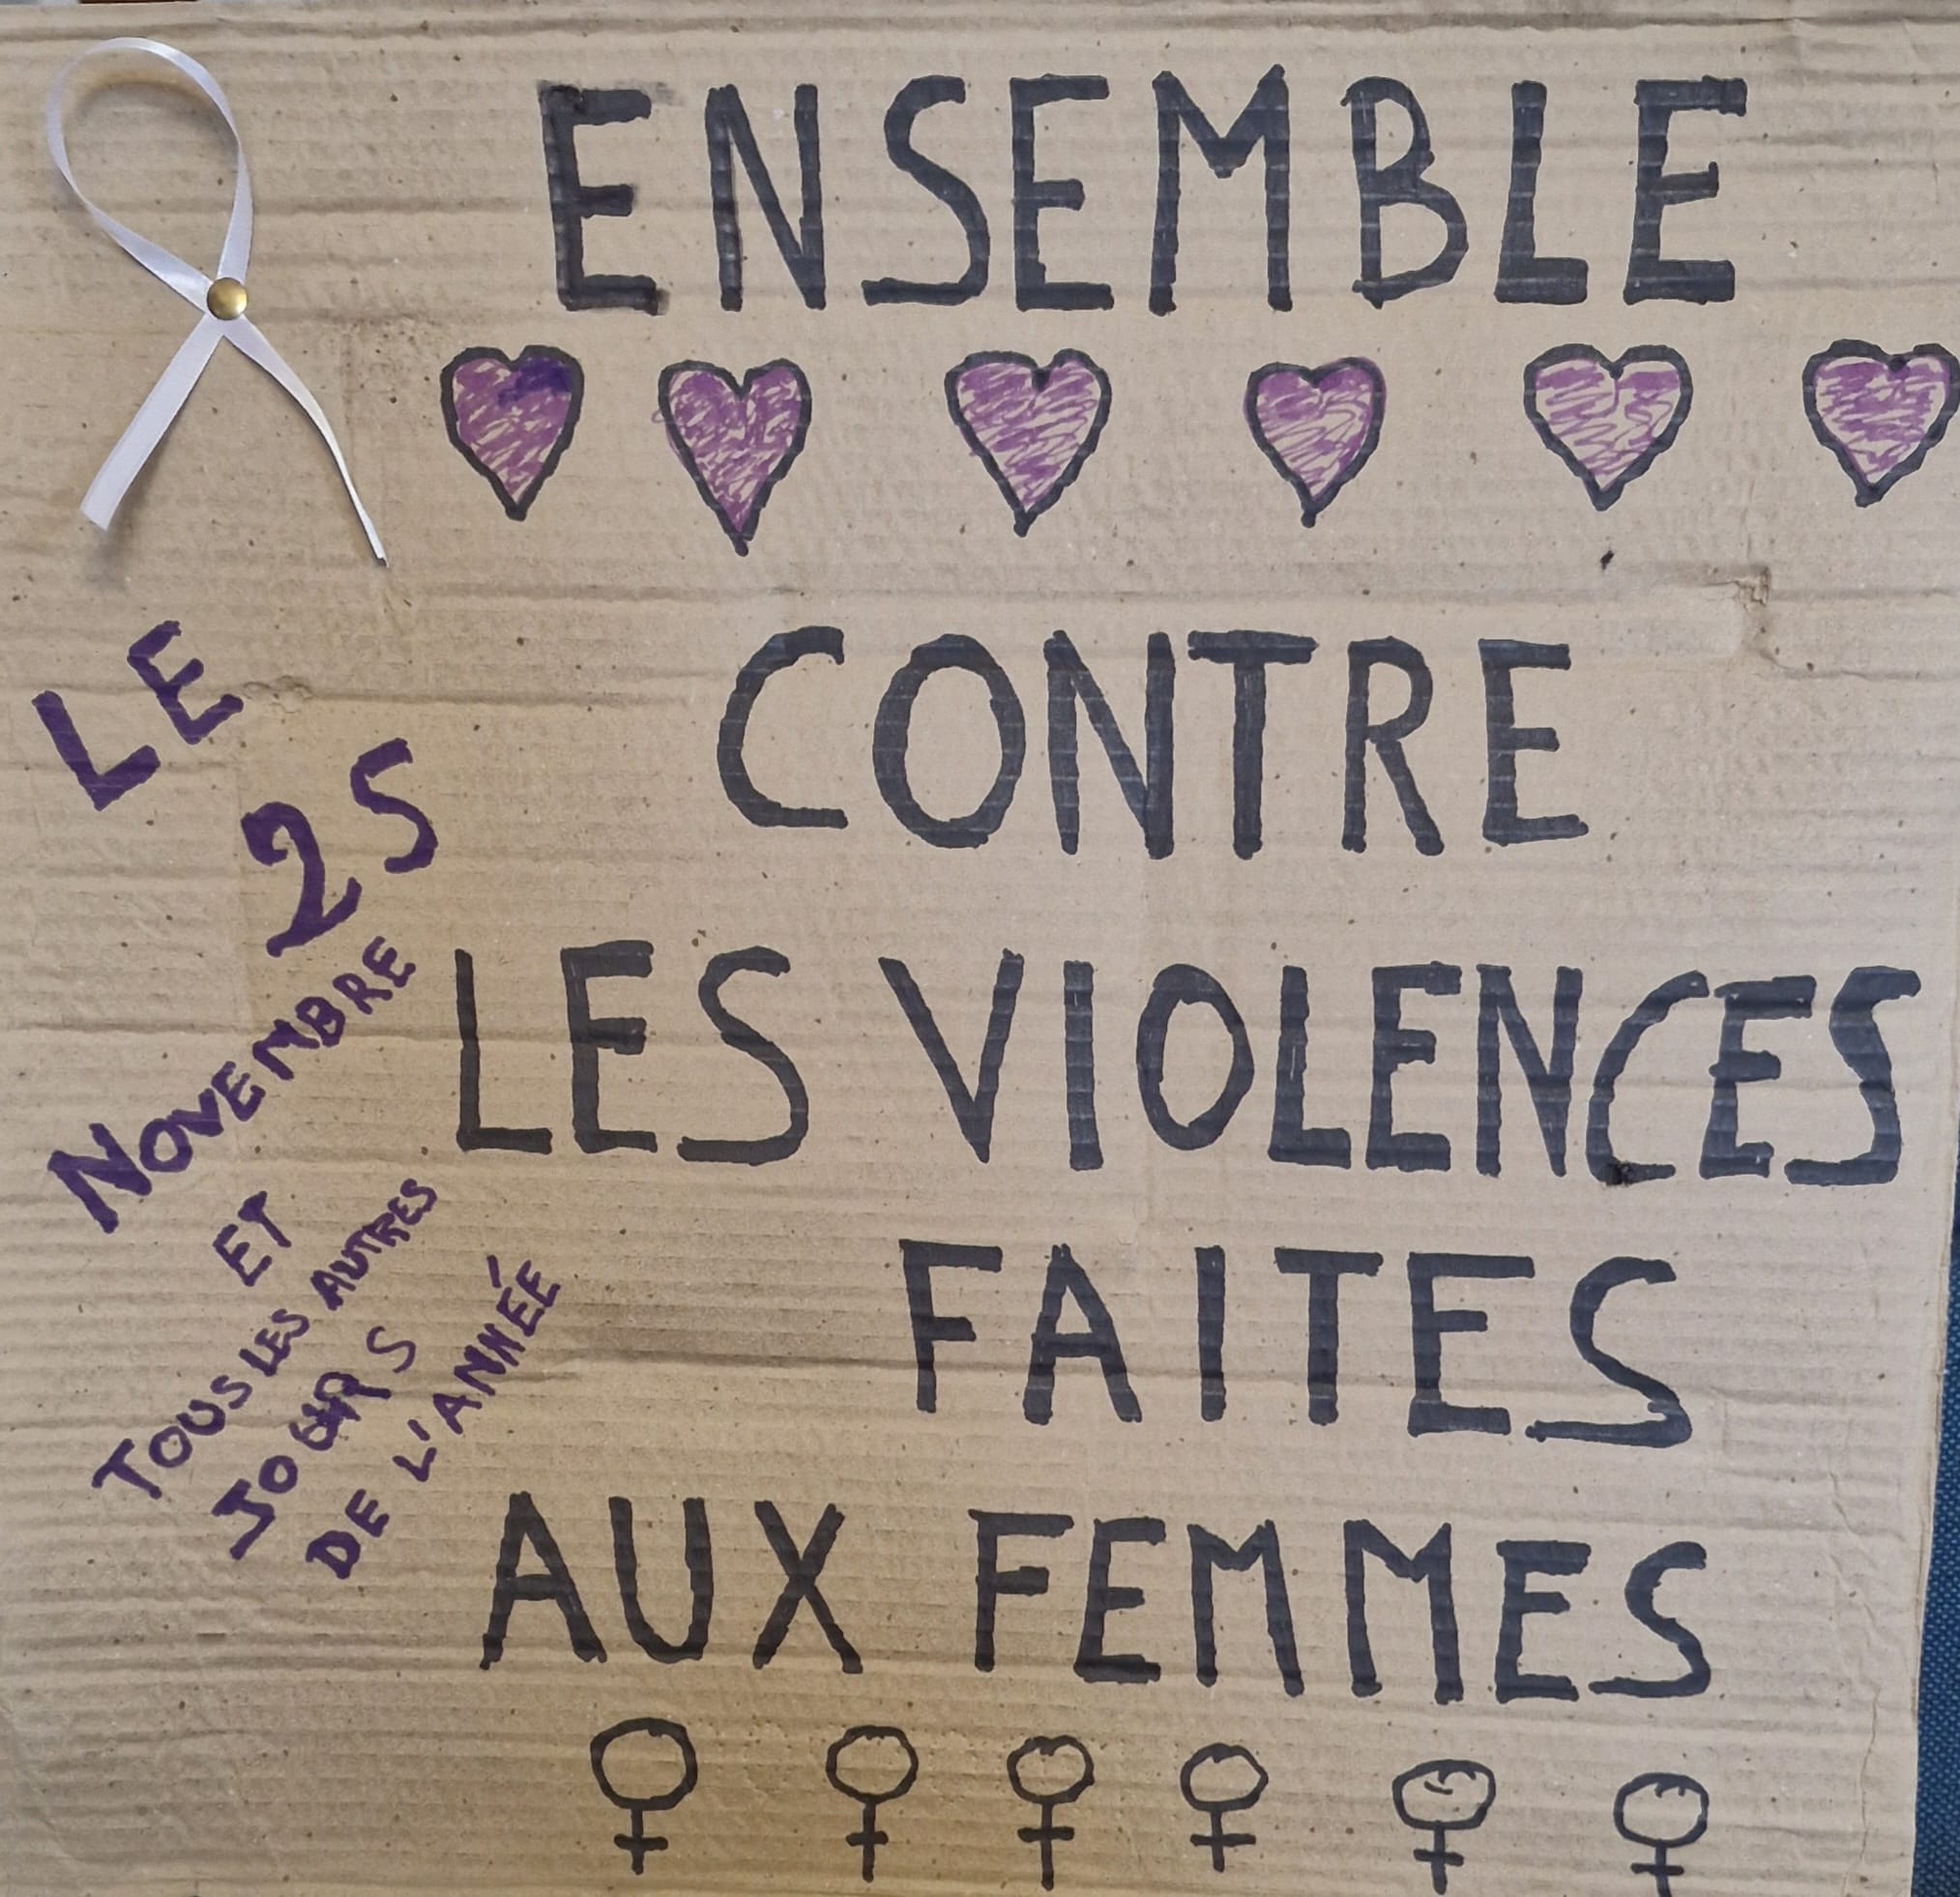 ENSEMBLE
CONTRE
LES VIOLENCES
FAITES
AUX FEMMES
LE
25
NOVEMBRE
ET
TOUS LES AUTRES
JOURS
DE L'ANNÉE